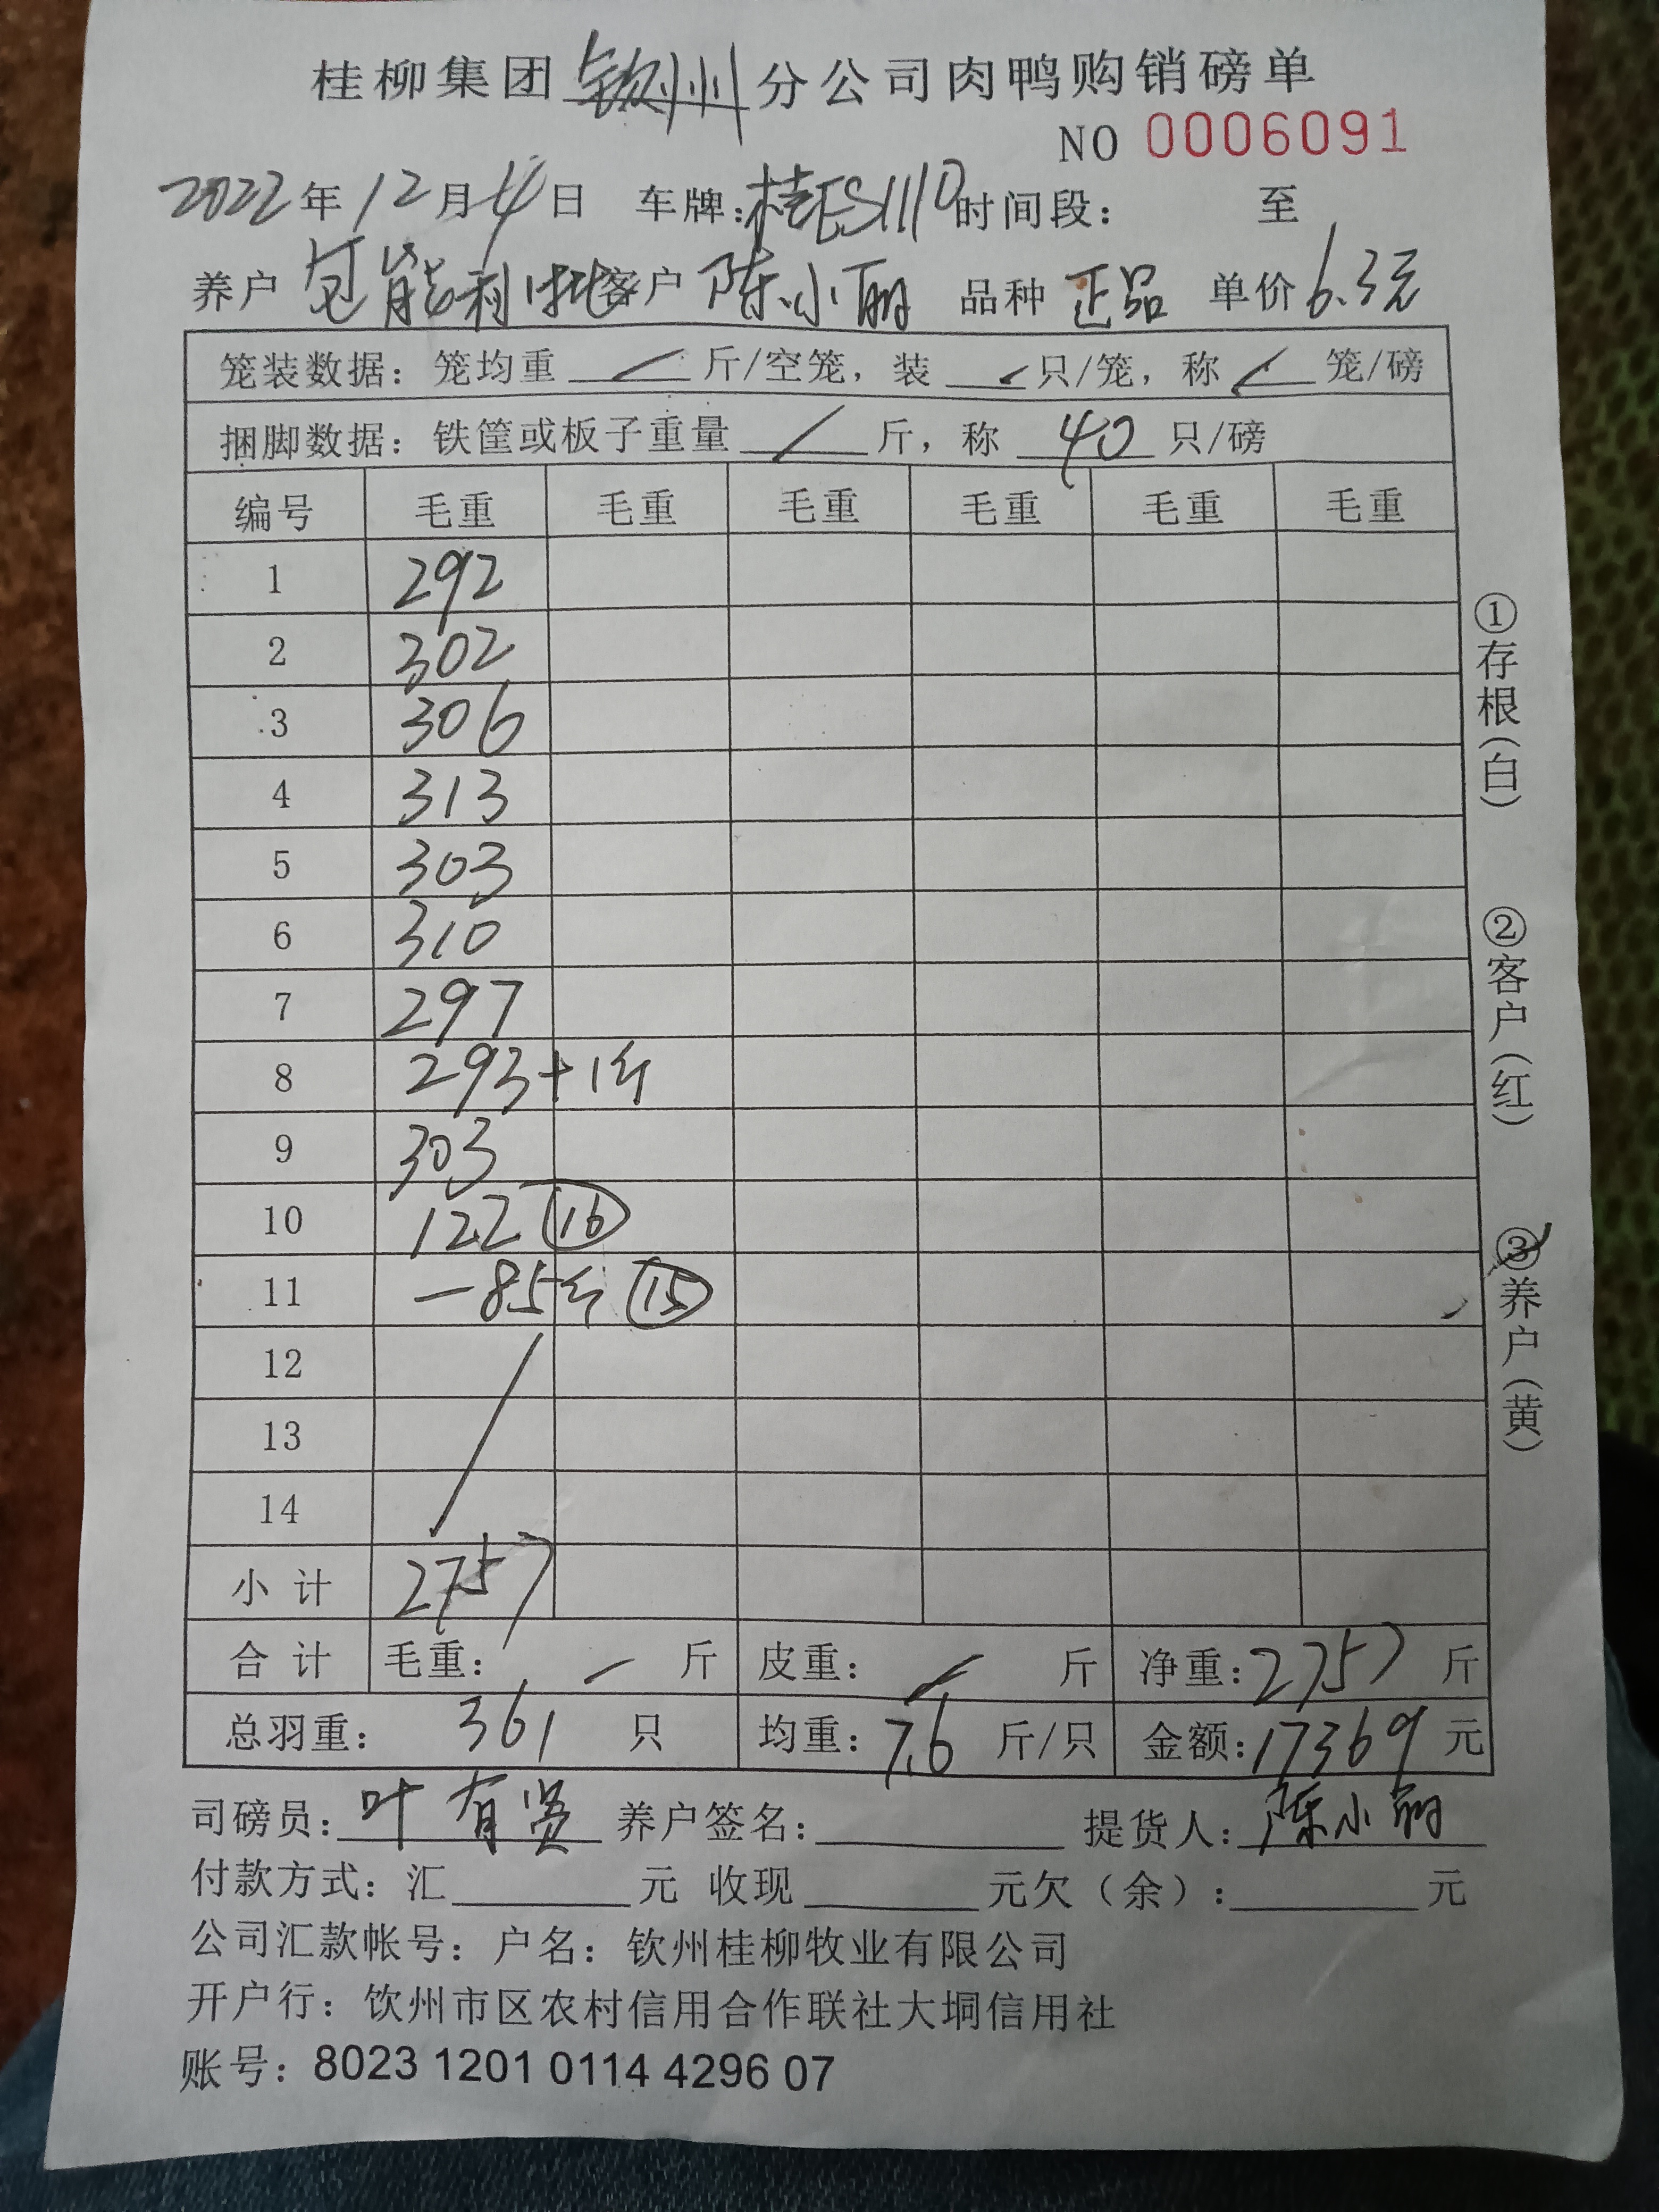 桂柳集团钦州分公司肉鸭购销磅单
NO 0006091
2022年12月4日 车牌:桂ES1110时间段: 至
养户 包能利 客户 陈小丽 品种 正品 单价6.3元
笼装数据:笼均重 / 斤/空笼,装 / 只/笼,称 / 笼/磅
捆脚数据:铁筐或板子重量 / 斤,称 40 只/磅
编号 毛重 毛重 毛重 毛重 毛重 毛重
1 292
2 302
3 306
4 313
5 303
6 310
7 297
8 293+1斤
9 303
10 122 ⑯
11 -85斤 ⑮
12
13
14
小计 2757
合计 毛重: / 斤 皮重: / 斤 净重:2757 斤
总羽重: 361 只 均重:7.6 斤/只 金额:17369 元
司磅员:叶有贤 养户签名: 提货人:陈小丽
付款方式:汇 元 收现 元欠(余): 元
公司汇款帐号:户名:钦州桂柳牧业有限公司
开户行:钦州市区农村信用合作联社大垌信用社
账号:8023 1201 0114 4296 07
①存根(白)
②客户(红)
③养户(黄)